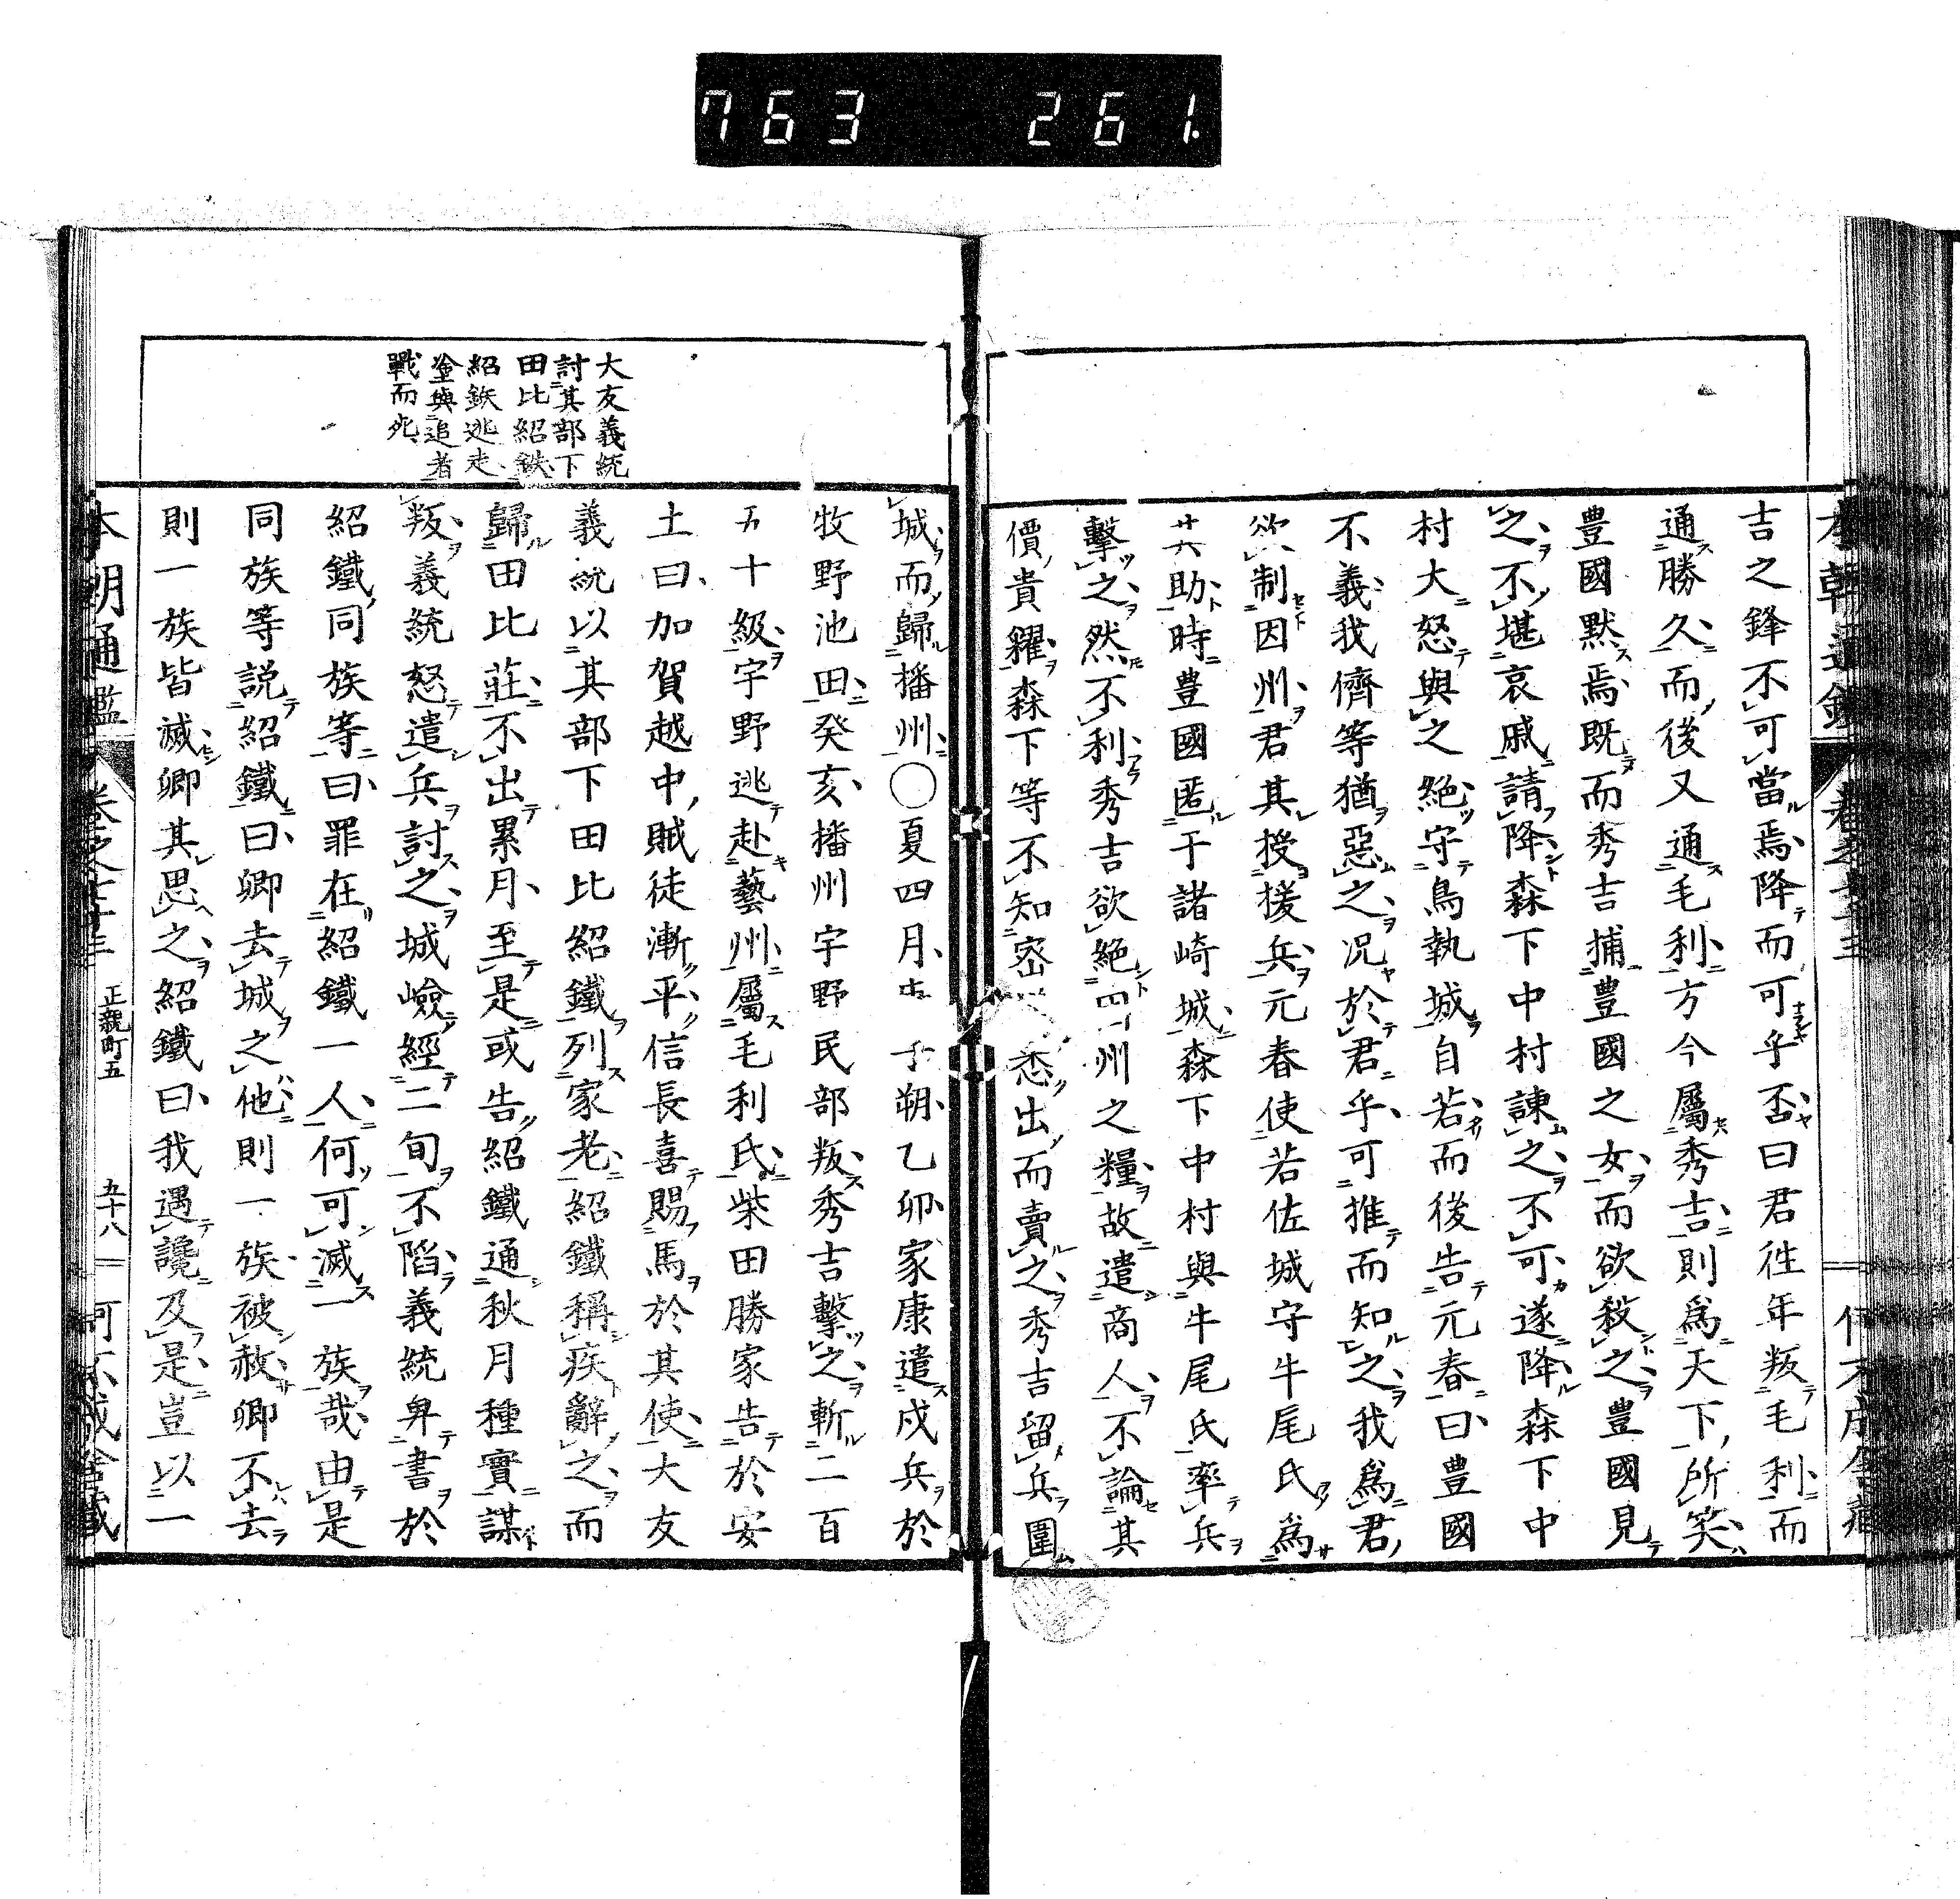 763 261.
吉之鋒不可當焉降而可乎否曰君往年叛毛利而
通勝久而後又通毛利方今屬秀吉則爲天下所笑
豊國默焉既而秀吉捕豊國之女而欲殺之豊國見
之不堪哀戚請降森下中村諫之不可遂降森下中
村大怒與之絶守鳥執城自若而後告元春曰豊國
不義我儕等猶惡之况於君乎可推而知之我爲君
欲制因州君其授援兵元春使若佐城守牛尾氏爲
其助時豊國匿于諸崎城森下中村與牛尾氏率兵
擊之然不利秀吉欲絶四州之糧故遣商人不論其
價貴糴森下等不知密 悉出而賣之秀吉留兵圍
城而歸播州○夏四月 子朔乙卯家康遣戍兵於
牧野池田癸亥播州宇野民部叛秀吉擊之斬二百
五十級宇野逃赴藝州屬毛利氏柴田勝家告於安
土曰加賀越中賊徒漸平信長喜賜馬於其使大友
義統以其部下田比紹鐵列家老紹鐵稱疾辭之而
歸田比莊不出累月至是或告紹鐵通秋月種實謀
叛義統怒遣兵討之城嶮經二旬不陷義統舁書於
紹鐵同族等曰罪在紹鐵一人何可滅一族哉由是
同族等説紹鐵曰卿去城之他則一族被赦卿不去
則一族皆滅卿其思之紹鐵曰我遇讒及是豈以一
大友義統
討其部下
田比紹鉄
紹鉄逃走
塗與追者
戰而死
本朝通鑑
正親町五
五十八